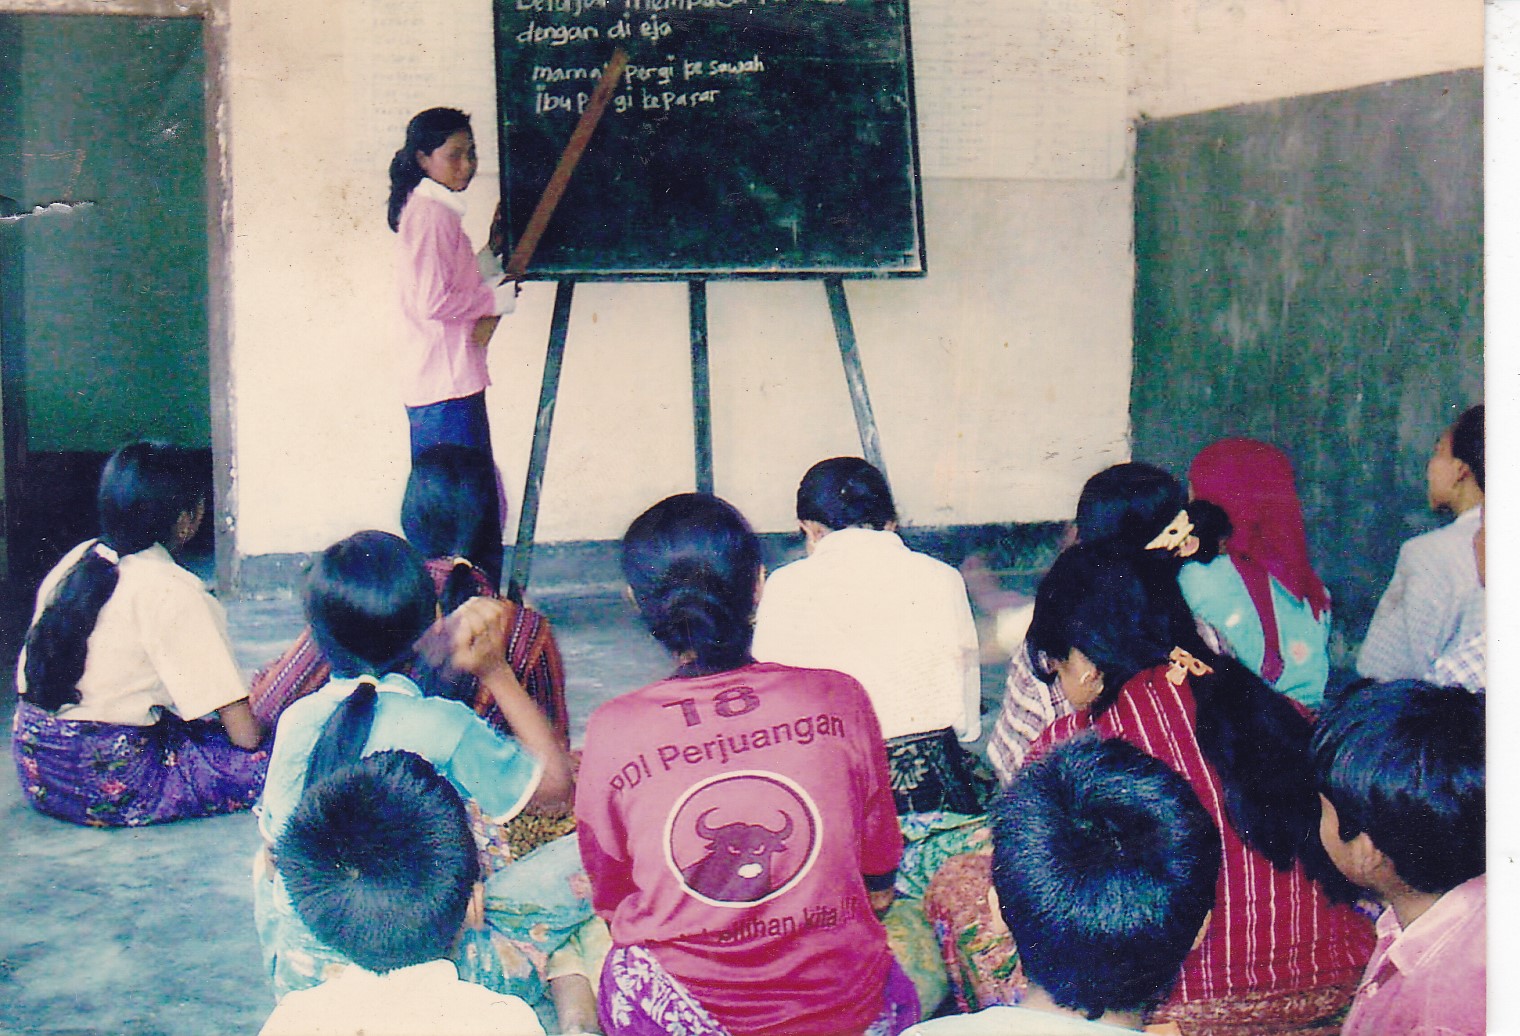 Belajar membaca
dengan di eja
mama pergi ke sawah
ibu pergi ke pasar
18
PDI Perjuangan
pilihan kita!!!